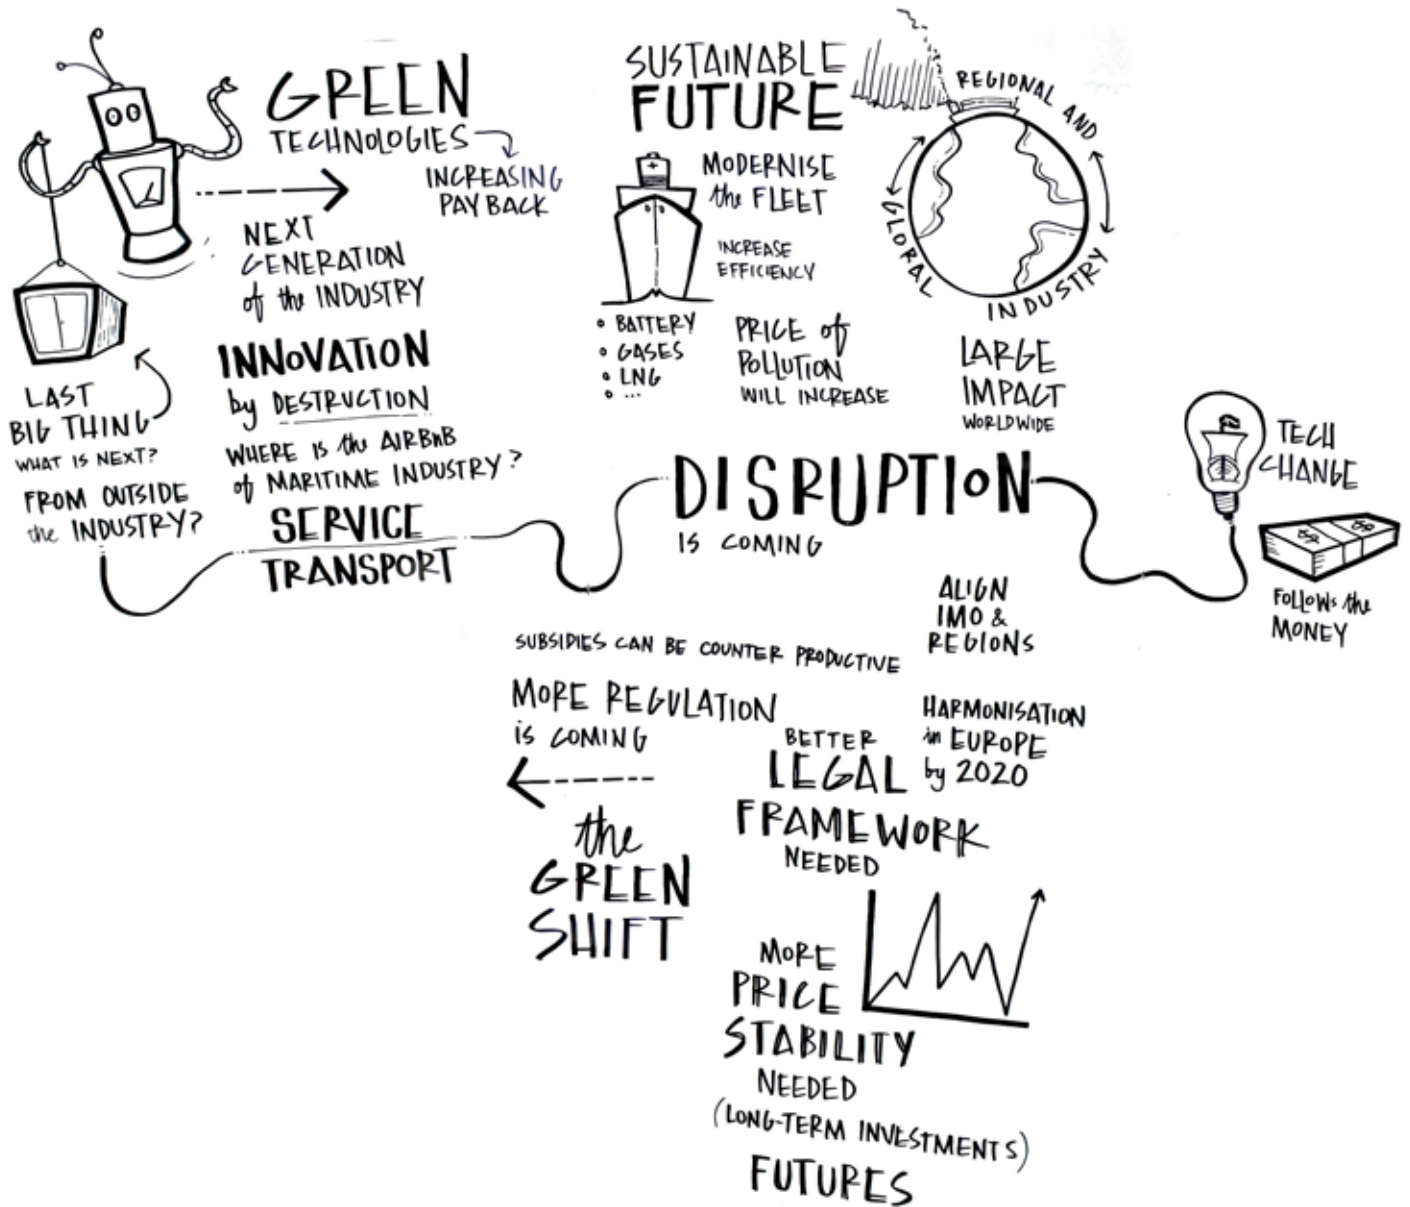 GREEN
TECHNOLOGIES
INCREASING
PAY BACK
NEXT
GENERATION
of the INDUSTRY
INNOVATION
by DESTRUCTION
WHERE IS the AIRBNB
of MARITIME INDUSTRY?
SERVICE
TRANSPORT
LAST
BIG THING
WHAT IS NEXT?
FROM OUTSIDE
the INDUSTRY?
SUSTAINABLE
FUTURE
MODERNISE
the FLEET
INCREASE
EFFICIENCY
• BATTERY
• GASES
• LNG
• ...
PRICE of
POLLUTION
WILL INCREASE
REGIONAL AND
GLOBAL
INDUSTRY
LARGE
IMPACT
WORLDWIDE
DISRUPTION
IS COMING
TECH
CHANGE
FOLLOWS the
MONEY
ALIGN
IMO &
REGIONS
SUBSIDIES CAN BE COUNTER PRODUCTIVE
MORE REGULATION
is COMING
HARMONISATION
in EUROPE
by 2020
BETTER
LEGAL
FRAMEWORK
NEEDED
the
GREEN
SHIFT
MORE
PRICE
STABILITY
NEEDED
(LONG-TERM INVESTMENTS)
FUTURES